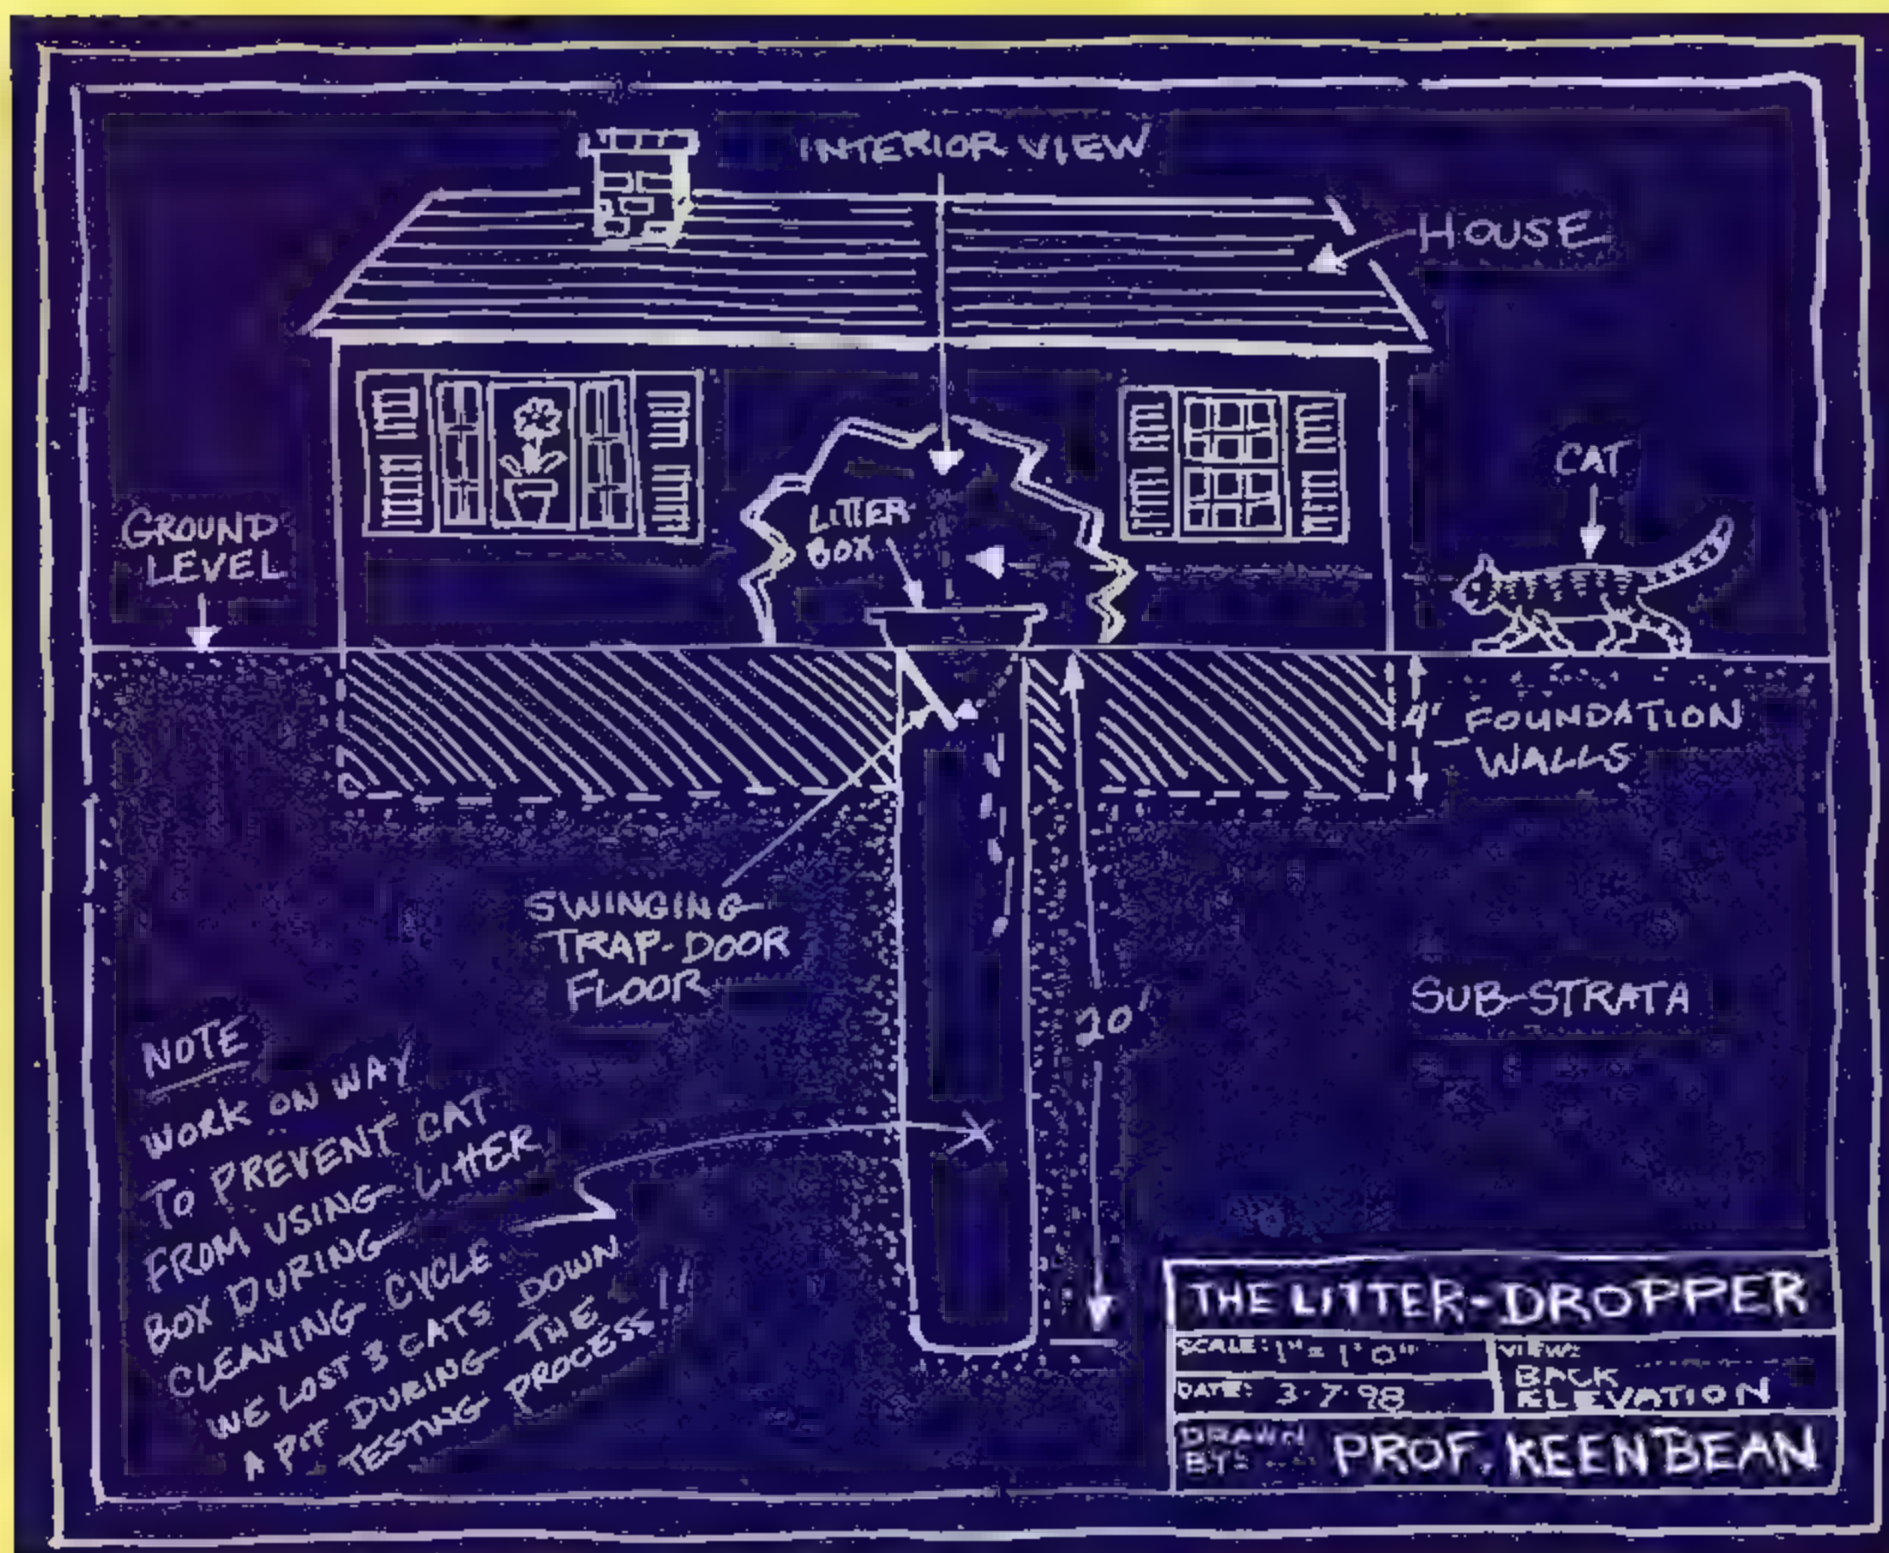 INTERIOR VIEW
HOUSE
CAT
LITTER
BOX
GROUND
LEVEL
4' FOUNDATION
WALLS
SWINGING
TRAP-DOOR
FLOOR
20'
SUB-STRATA
NOTE
WORK ON WAY
TO PREVENT CAT
FROM USING LITTER
BOX DURING
CLEANING CYCLE
WE LOST 3 CATS DOWN
A PIT DURING THE
TESTING PROCESS!!
THE LITTER-DROPPER
SCALE: 1" = 1' 0"
VIEW:
BACK
ELEVATION
DATE: 3-7-98
DRAWN
BY:
PROF. KEENBEAN